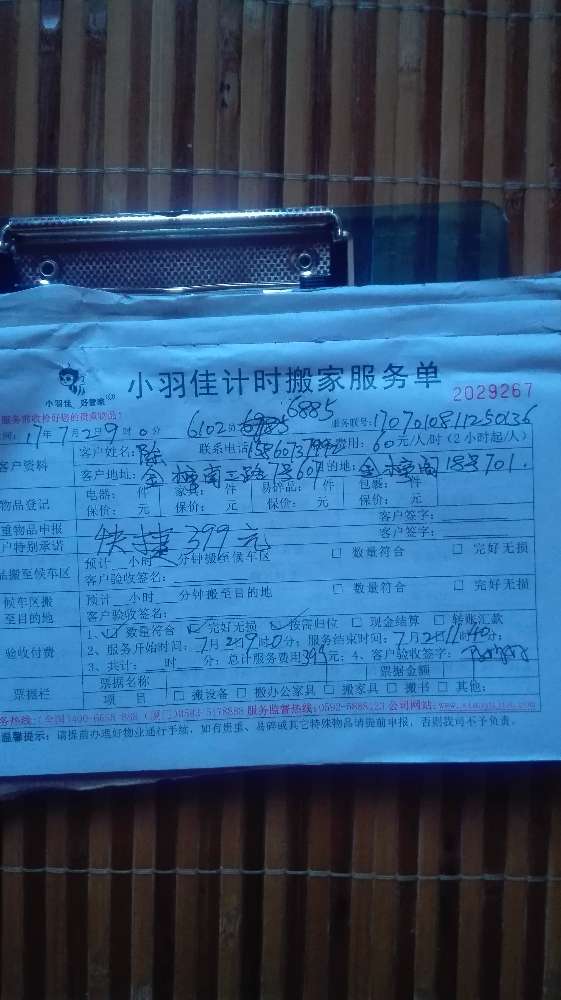 小羽佳 好管家
小羽佳计时搬家服务单
2029267
服务前收拾好您的贵重物品!
间: 17年7月2日9时0分 6102 6885 服务联号: 1707010811250136
客户资料
客户姓名: 陈 联系电话 费用: 60元/人/时 (2小时起/人)
客户地址: 金 南二路7号601 目的地: 金 18号701.
物品登记
电器: 件 家具: 件 易碎品: 件 包裹: 件
保价: 元 保价: 元 保价: 元 保价: 元
重物品申报 客户签字:
户特别承诺 快捷399元 客户签字:
品搬至候车区
预计__小时__分钟搬至候车区 □ 数量符合 □ 完好无损
客户验收签名:
候车区搬至目的地
预计__小时__分钟搬至目的地 □ 数量符合 □ 完好无损
客户验收签名:
验收付费
1、☑ 数量符合 ☑ 完好无损 ☑ 按需归位 □ 现金结算 □ 转账汇款
2、服务开始时间: 7月2日9时0分; 服务结束时间: 7月2日11时40分;
3、共计: 时 分; 总计服务费用399元; 4、客户验收签字:
票据栏
票据名称 票据金额
项 目 □ 搬设备 □ 搬办公家具 □ 搬家具 □ 搬书 □ 其他:
务热线: (全国)400-6658-868 (厦门)0592-5178888 服务监督热线: 0592-5888123 公司网站:
温馨提示: 请提前办理好物业通行手续, 如有贵重、易碎或其它特殊物品请提前申报, 否则我司不予负责。